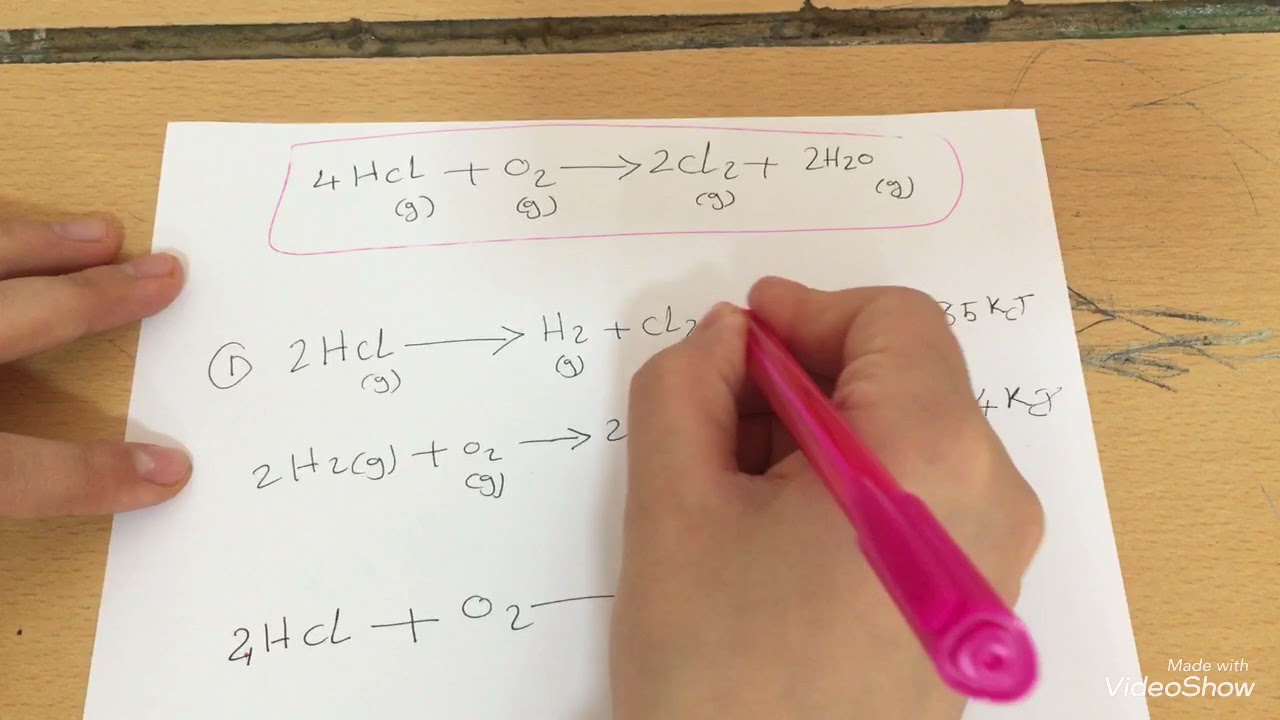 4HCl + O2 → 2Cl2 + 2H2O
(g) (g) (g) (g)
① 2HCl → H2 + Cl2 35 KJ
(g) (g)
2H2(g) + O2 → 2 4 KJ
(g)
2HCl + O2
Made with
VideoShow